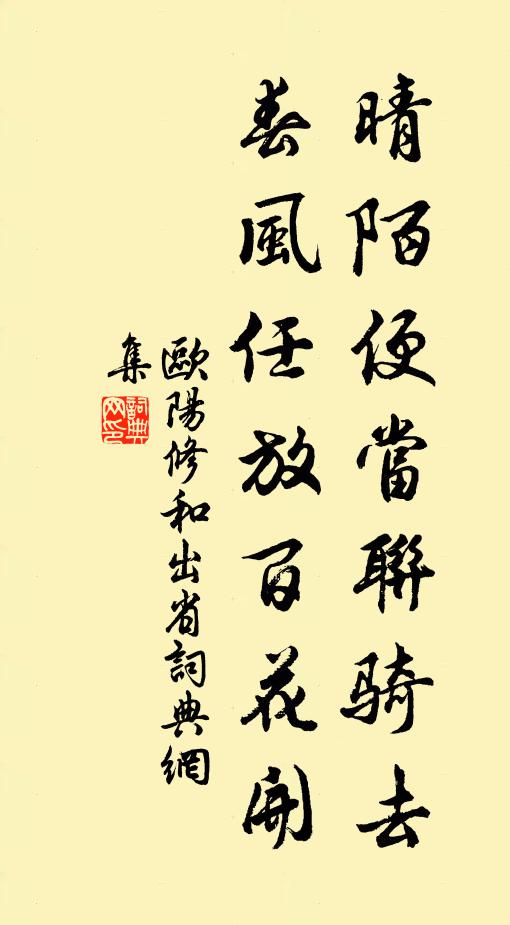 晴陌便當聯騎去
春風任放百花開
歐陽修和出省詞典網
集
詞典網印